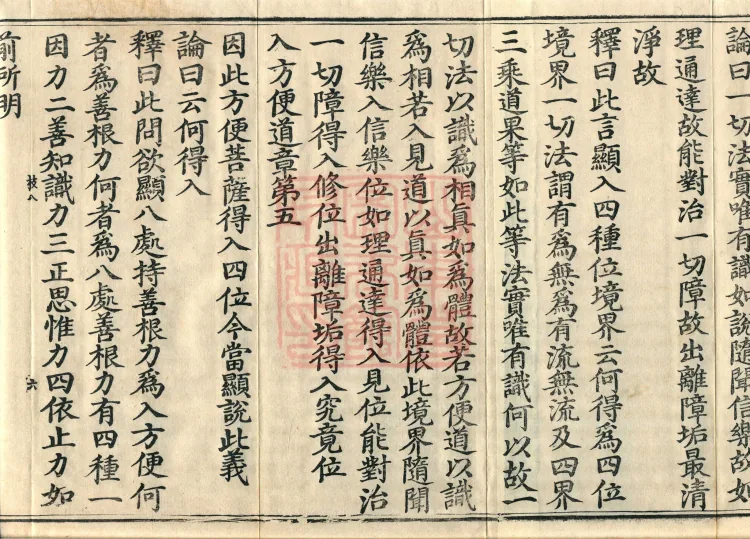 論曰一切法實唯有識如說隨聞信樂故如
理通達故能對治一切障故出離障垢最清
淨故
釋曰此言顯入四種位境界云何得爲四位
境界一切法謂有爲無爲有流無流及四界
三乘道果等如此等法實唯有識何以故一
切法以識爲相眞如爲體故若方便道以識
爲相若入見道以眞如爲體依此境界隨聞
信樂入信樂位如理通達得入見位能對治
一切障得入修位出離障垢得入究竟位
入方便道章第五
因此方便菩薩得入四位今當顯說此義
論曰云何得入
釋曰此問欲顯八處持善根力爲入方便何
者爲善根力何者爲八處善根力有四種一
因力二善知識力三正思惟力四依止力如
前所明